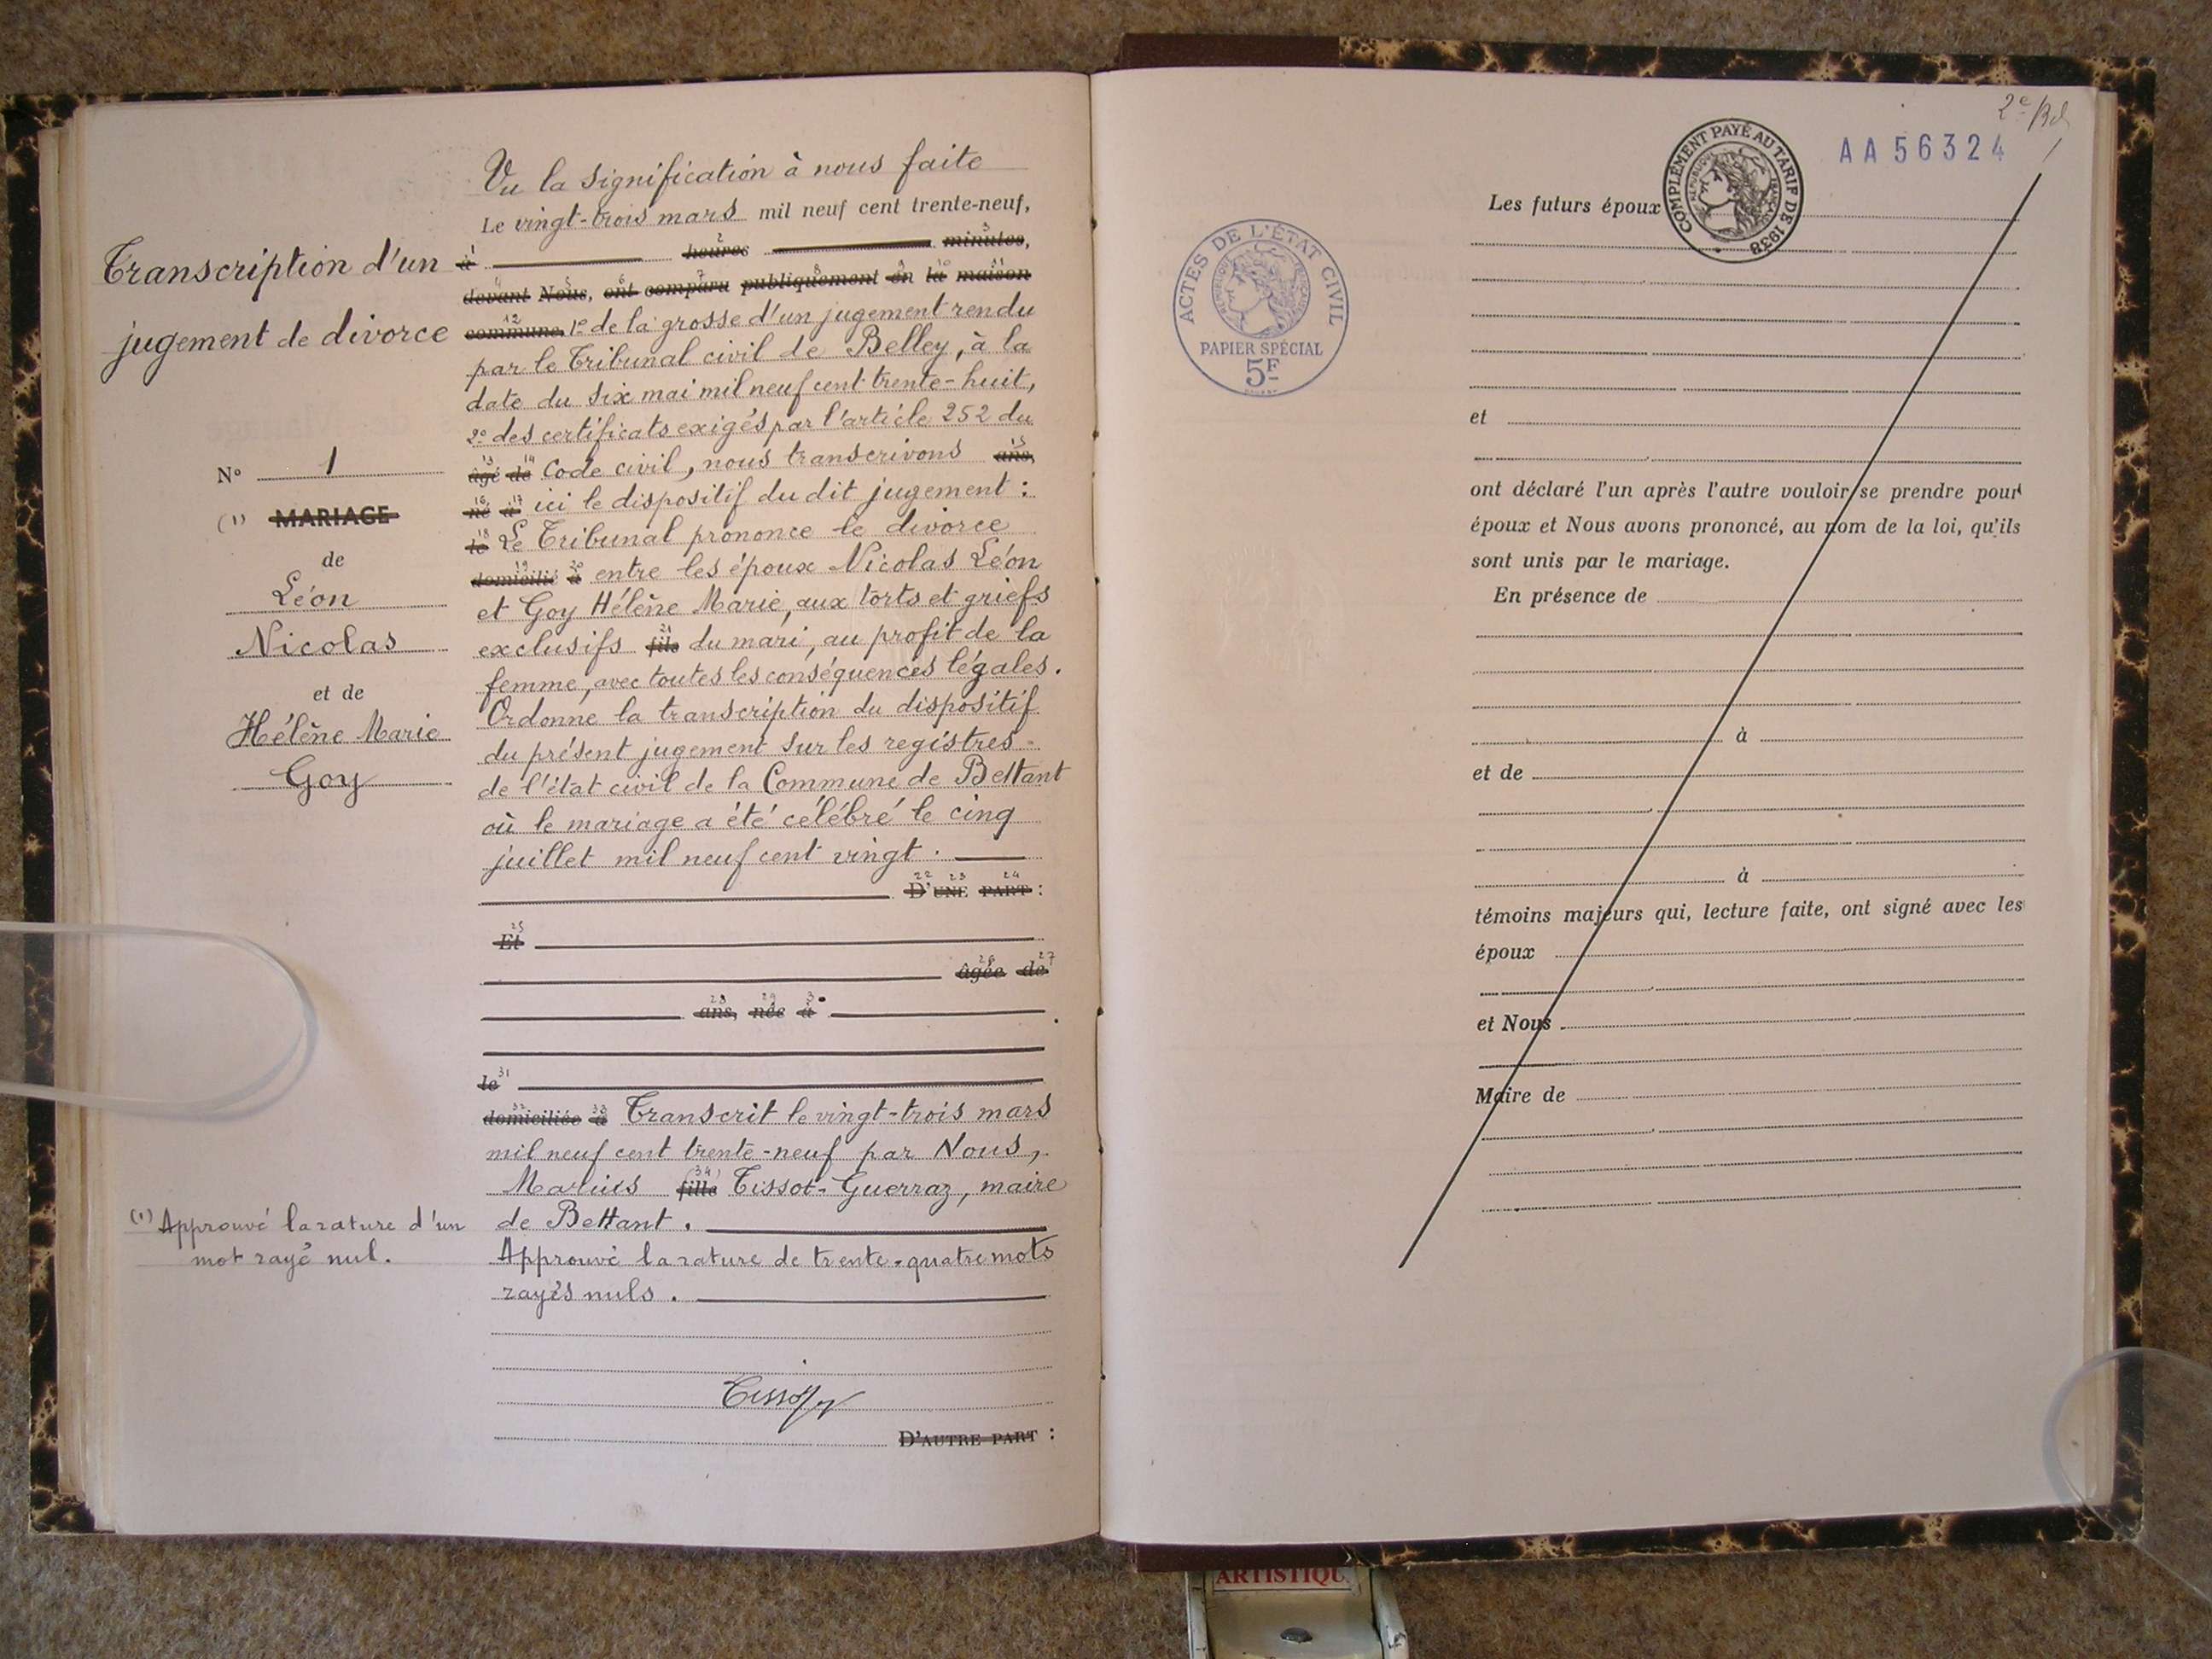 Transcription d'un
jugement de divorce
N° 1
(1) MARIAGE
de
Léon
Nicolas
et de
Hélène Marie
Goy
(1) Approuvé la rature d'un
mot rayé nul.
Vu la signification à nous faite
Le vingt-trois mars mil neuf cent trente-neuf,
à 1 heures 2 minutes, 3
devant 4 Nous, 5 ont 6 comparu 7 publiquement 8 en 9 la 10 maison 11
commune 12 1° de la grosse d'un jugement rendu
par le Tribunal civil de Belley, à la
date du six mai mil neuf cent trente-huit,
2° des certificats exigés par l'article 252 du
âgé 13 de 14 Code civil, nous transcrivons ans, 15
né 16 à 17 ici le dispositif du dit jugement :
le 18 Le Tribunal prononce le divorce
domicilié 19 à 20 entre les époux Nicolas Léon
et Goy Hélène Marie, aux torts et griefs
exclusifs fils 21 du mari, au profit de la
femme, avec toutes les conséquences légales.
Ordonne la transcription du dispositif
du présent jugement sur les registres
de l'état civil de la Commune de Bettant
où le mariage a été célébré le cinq
juillet mil neuf cent vingt.
D' 22 UNE 23 PART 24 :
Et 25
âgée 26 de 27
ans, 28 née 29 à 30
le 31
domiciliée 32 à 33 Transcrit le vingt-trois mars
mil neuf cent trente-neuf par Nous,
Marius fille (34) Tissot-Guerraz, maire
de Bettant.
Approuvé la rature de trente-quatre mots
rayés nuls.
D'AUTRE PART :
2e
AA 56324
COMPLÉMENT PAYÉ AU TARIF DE 1938
RÉPUBLIQUE FRANÇAISE
ACTES DE L'ÉTAT CIVIL
RÉPUBLIQUE FRANÇAISE
PAPIER SPÉCIAL
5F
Les futurs époux
et
ont déclaré l'un après l'autre vouloir se prendre pour
époux et Nous avons prononcé, au nom de la loi, qu'ils
sont unis par le mariage.
En présence de
à
et de
à
témoins majeurs qui, lecture faite, ont signé avec les
époux
et Nous
Maire de
ARTISTIQU